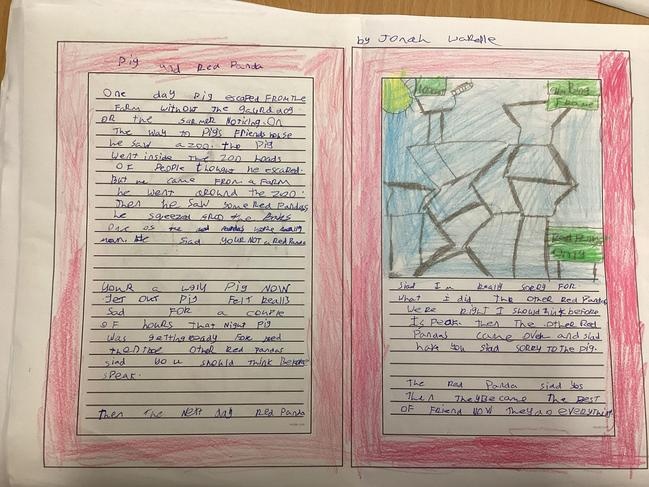 Pig and Red Panda
One day Pig escaped From the
Farm without the gaurd dog
or the farmer noticing. On
The way to Pigs Friends house
he saw a zoo. the Pig
went inside The zoo loads
of People thought he escared.
But he came From a Farm
he went around the zoo.
Then he saw some Red Pandas
he squeezed the
one os the red Pandas were really
mean. He siad YOUR NOT a Red Panda
Your a ugly Pig NOW
Get out Pig Felt Really
Sad For a couple
of hours That night Pig
was getting Ready For bed
then the other Red Pandas
siad you should think Before
speak.
Then The Next day Red Panda
by Jonah Warelle
Red Pandas
only
siad I'm Really sorry For
what I did The other Red Pandas
were right I should think before
Is peak. then The other Red
Pandas came over and siad
have you siad sorry to the Pig.
The Red Panda siad yes
Then They Became The Best
of Friend NOW They do everything